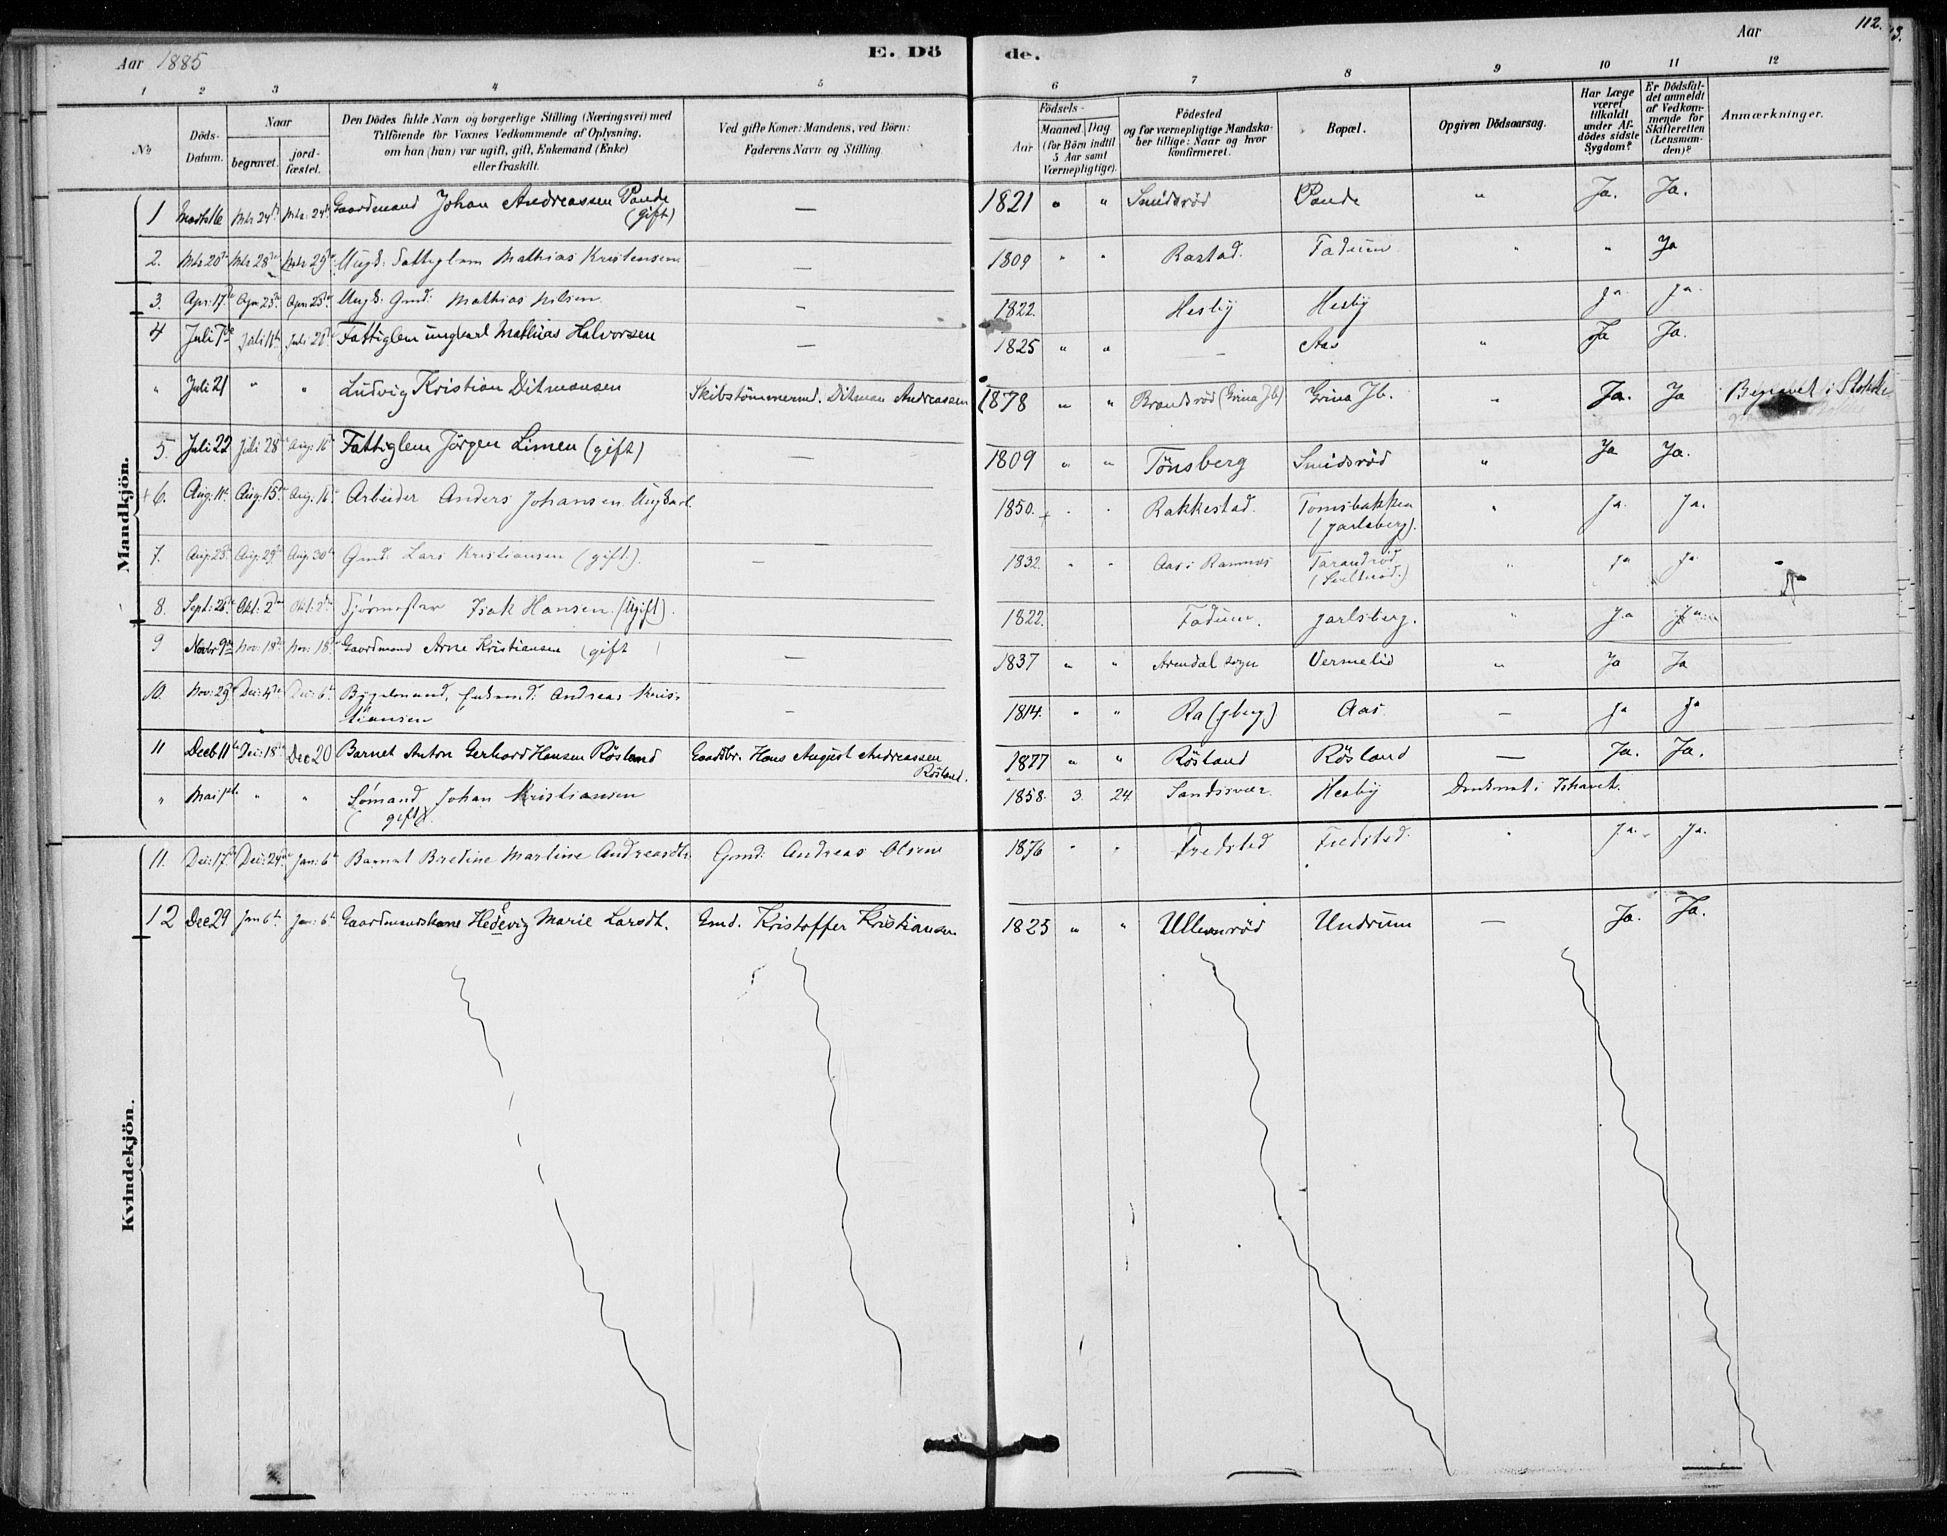 112.
Aar 1885 E. Dö de. Aar
1 2 3 4 5 6 7 8 9 10 11 12
No
Döds-Datum.
Naar
begravet. jordfæstet.
Den Dödes fulde Navn og borgerlige Stilling (Næringsvei) med
Tilföiende for Voxnes Vedkommende af Oplysning,
om han (hun) var ugift, gift, Enkemand (Enke)
eller fraskilt.
Ved gifte Koner: Mandens, ved Börn:
Faderens Navn og Stilling
Födsels-
Aar Maaned. Dag
(for Börn indtil
5 Aar samt
Værnepligtige).
Födested
og for værnepligtige Mandska-
ber tillige: Naar og hvor
konfirmeret.
Bopæl.
Opgiven Dödsaarsag.
Har Læge
været
tilkaldt
under Af-
dödes sidste
Sygdom?
Er Dödsfal-
det anmeldt
af Vedkom-
mende for
Skifteretten
(Lensman-
den)?
Anmærkninger.
Mandkjön.
1 Marts 16 Mts 24de Mts: 24de Gaardmand Johan Andreassen Pande (gift) — 1821 " " Smidsrød Pande " Ja. Ja.
2. Mts 20de Mts 28de Mts 29de Ungk: Fattiglem Mathias Kristensen — 1809 " " Rastad. Fadum " " Ja
3. Apr: 17de Apr: 25de Apr: 25de Ungk: Gmd: Mathias Nilsen — 1822. Hesby Hesby Ja. Ja.
4 Juli 7de Juli 11te Fattiglem ungkarl Mathias Halvorsen — 1825 " " — Aas " Ja Ja.
" Juli 21 " " Ludvig Kristian Ditmansen Skibstømmermd. Ditman Andreassen 1878 " " Brandsrød (Grina Jb) Grina Jb. " Ja. Ja Begravet i Stokke
5. Juli 22 Juli 28 Aug: 16de Fattiglem Jørgen Limen (gift) — 1809 " " Tønsberg Smidsrød " Ja Ja.
+ 6. Aug: 11te Aug: 15de Aug: 16de Arbeider Anders Johansen. Ungkarl 1850. + " " Rakkestad. Tomsbakken (Jarlsberg). " Ja. Ja.
7. Aug: 25de Aug: 29de Aug 30te Gmd. Lars Kristiansen (gift.) — 1832. " " Aas i Ramnes Tarandrød " Ja Ja.
8. Sept: 25de Okt: 2den Okt: 2den Isak Hansen. (Ugift). 1822. Fadum. Jarlsberg. " Ja Ja
9 Novbr 9de Nov: 18de Nov: 18de Gaardmand Arne Kristiansen (gift) — 1837 " " Arendal sogn Vermelid " Ja Ja
10. Nov: 29de Dec: 4de Dec: 6te Enkemd: Andreas Kris-
tiansen — 1814. " " Ra (Jberg) Aas — Ja Ja
11 Decb 11te Dec: 18de Dec 20 Barnet Anton Gerhard Hansen Røsland Gaardbr. Hans August Andreassen
Røsland. 1877 " " Røsland Røsland — Ja. Ja.
" Mai 1ste " " Sømand Johan Kristiansen
(gift). 1858. 3. 24. Sandsvær. Hesby Druknet i Ishavet.
Kvindekjön.
11. Dec: 17de Dec: 29de Jan: 6te Barnet Bredine Martine Andreasdt. Gmd: Andreas Olsen 1876 " " Fredsted Fredsted. " Ja. Ja.
12 Dec 29 Jan 6te Jan: 6te Gaardmandskone Hedevig Marie Larsdt. Gmd. Kristoffer Kristiansen 1825 " " Ullensrød Undrum — Ja. Ja.